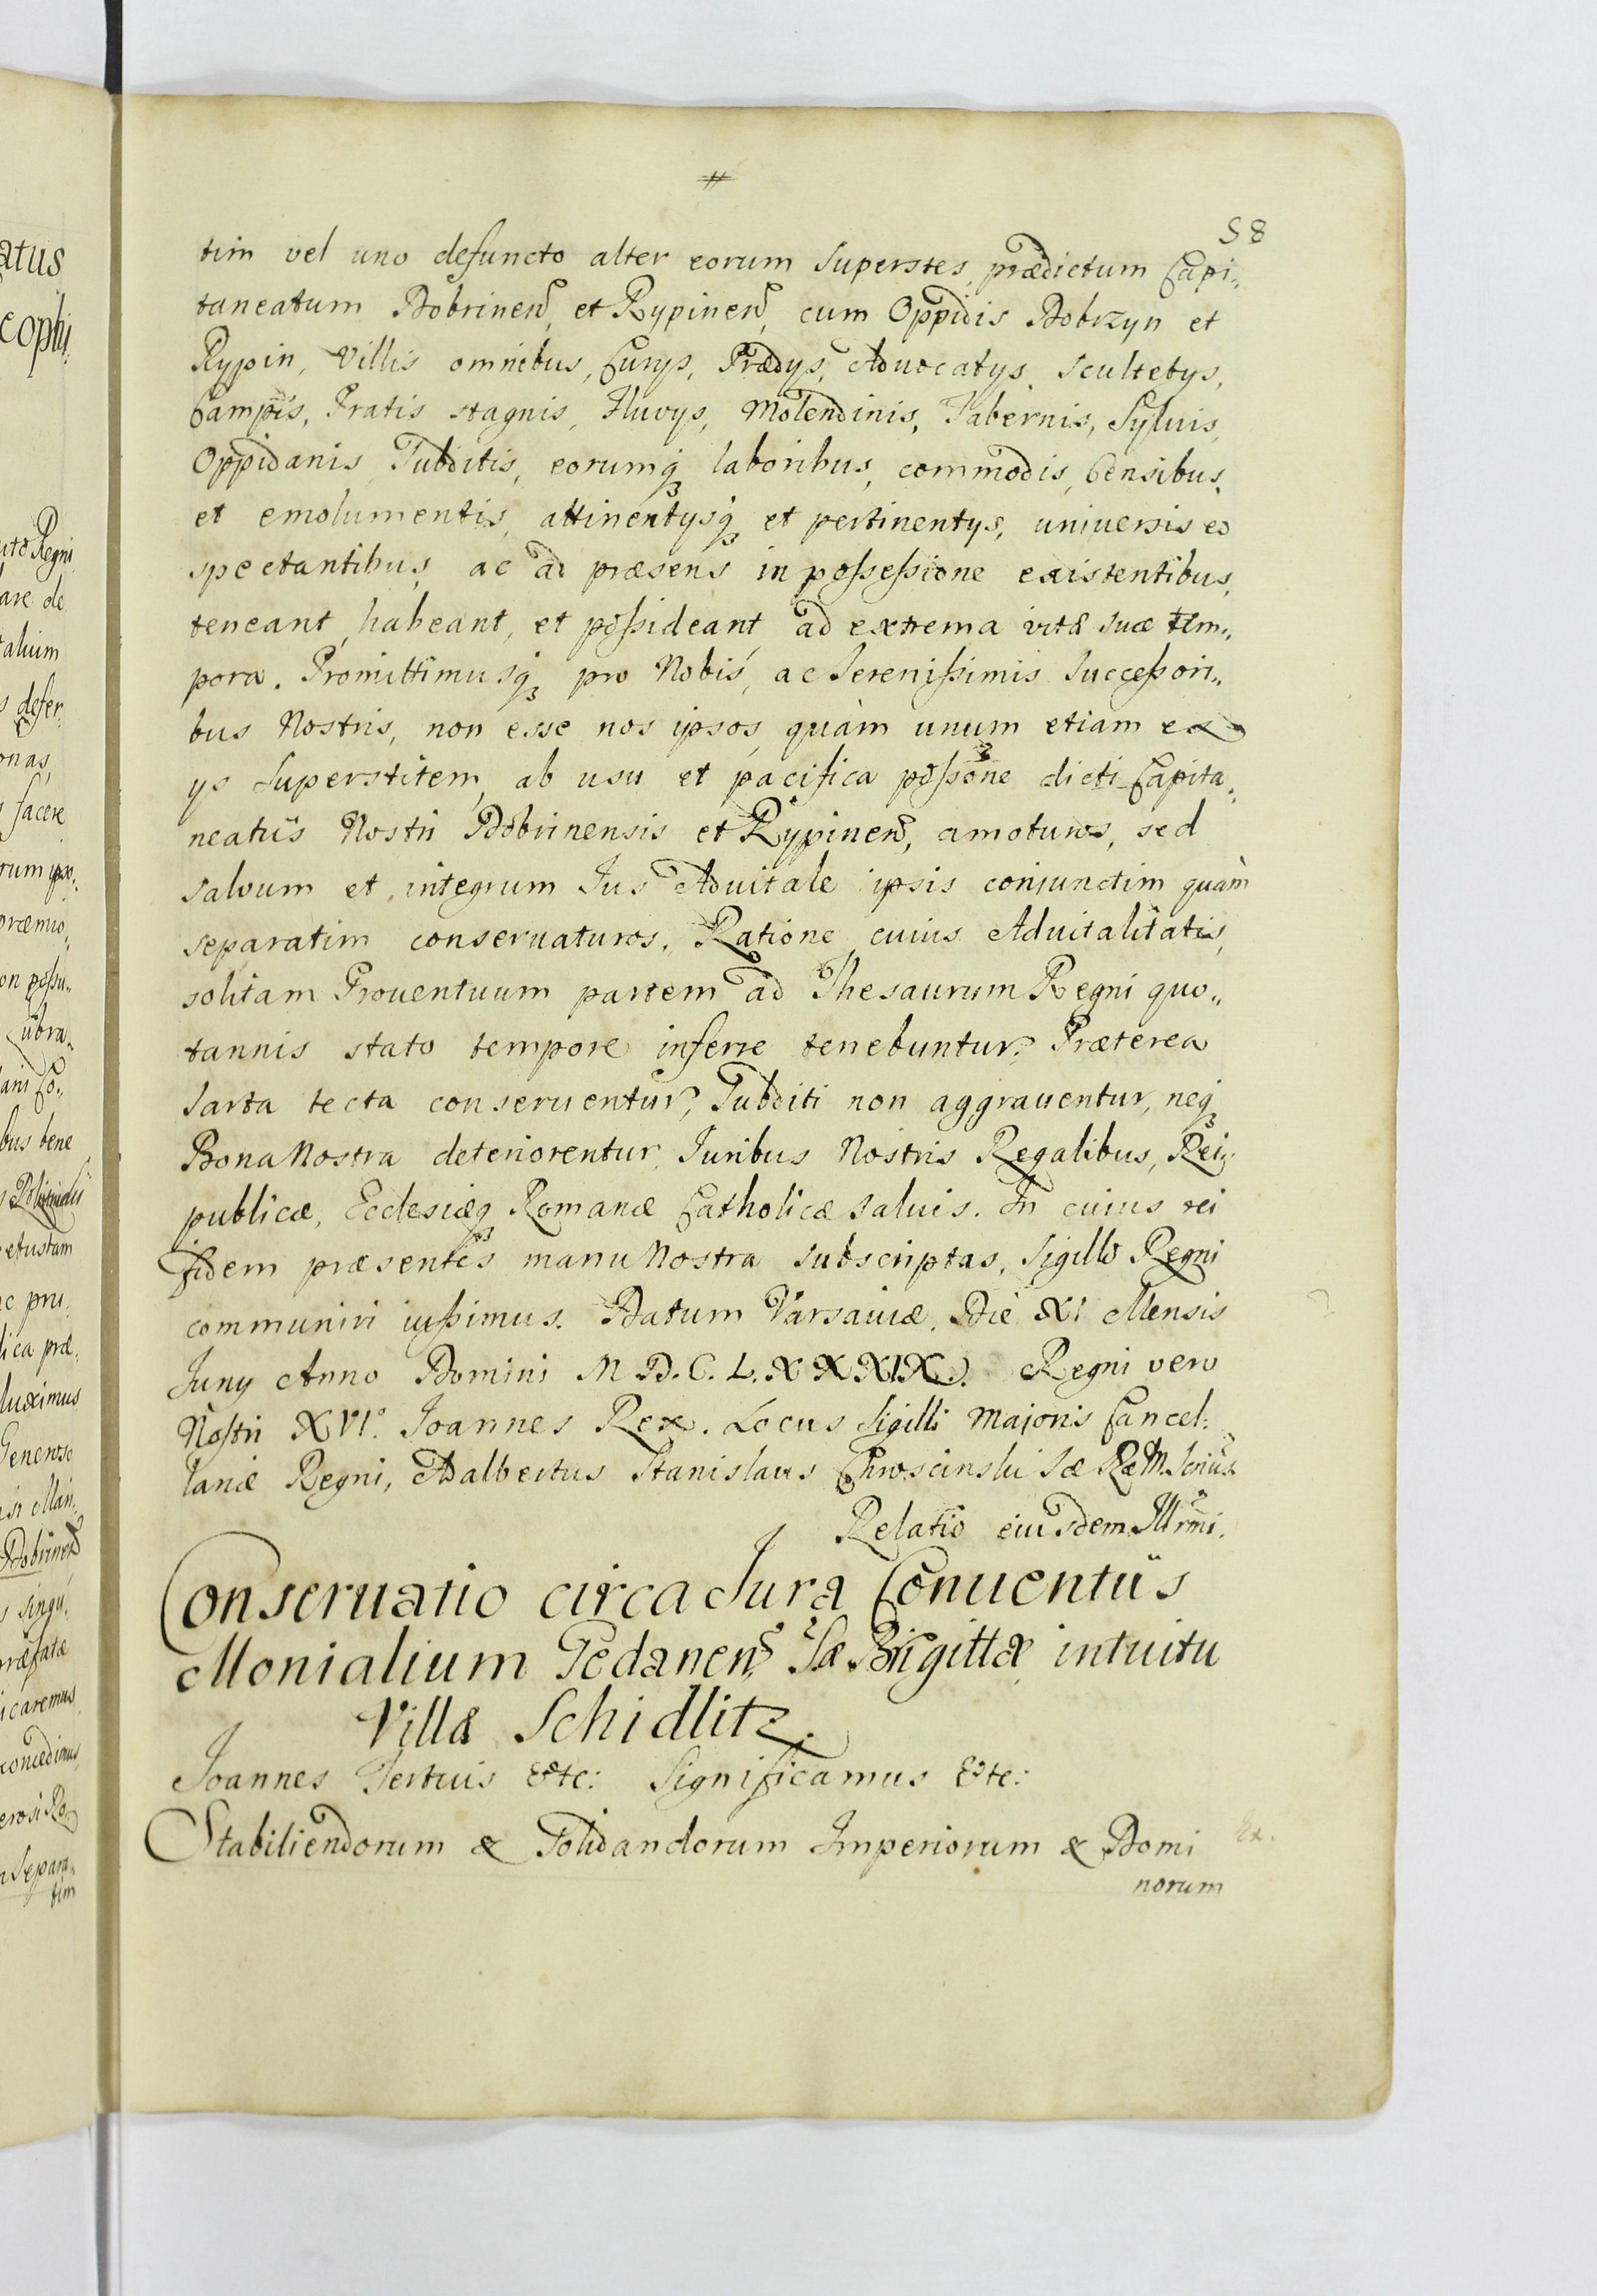 58
tim vel uno defuncto alter eorum superstes, prædictum Capi„
taneatum Dobrinen͂, et Rypinen͂, cum Oppidis Dobrzyn et
Rypin, Villis omnibus, Curys, Prædys, Aduocatys, Scultetys,
Campis, Pratis stagnis, Fluvys, Molendinis, Tabernis, Syluis,
Oppidanis Subditis, eorumq3 laboribus, commodis, Censibus,
et emolumentis, attinentysq3 et pertinentys, uniuersis eo
spectantibus, ac ad præsens in poſseſsione existentibus,
teneant, habeant, et poſsideant ad extrema vitæ suæ tem„
pora. Promittimusq3 pro Nobis, ac Sereniſsimis Succeſsori„
bus Nostris, non esse nos ipsos, quàm unum etiam ex
ys Superstitem, ab usu et pacifica poſsõne dicti Capita„
neatûs Nostri Dobrinensis et Rypinen͂, amoturos, sed
salvum et integrum Jus Aduitale ipsis coniunctim quàm
separatim conseruaturos. Ratione cuius Aduitalitatis,
solitam Prouentuum partem ad Thesaurum Regni quo„
tannis stato tempore inferre tenebuntur. Præterea
Sarta tecta conseruentur, Subditi non aggrauentur, neq3
Bona Nostra deteriorentur, Juribus Nostris Regalibus, Rei„
publicæ, Ecclesiæq3 Romanæ Catholicæ saluis. In cuius rei
fidem præsentes manu Nostra subscriptas, Sigillo Regni
communiri iuſsimus. Datum Varsauiæ, Die XI Mensis
Juny Anno Domini M. D. C. L. X X XIX. Regni vero
Nostri XVI.º Joannes Rex. Locus Sigilli Majoris Cancel„
lariæ Regni, Adalbertus Stanislaus Chroscinski Sæ Ræ M. Scrius
Relatio eiusdem Illrm̃i.
Conseruatio circa Jura Conuentûs
Monialium Gedanen͂ Sæ Brigittæ intuitu
Villæ Schidlitz.
Joannes Tertius Etc: Significamus Etc:
Stabiliendorum & Solidandorum Imperiorum & Domi
norum